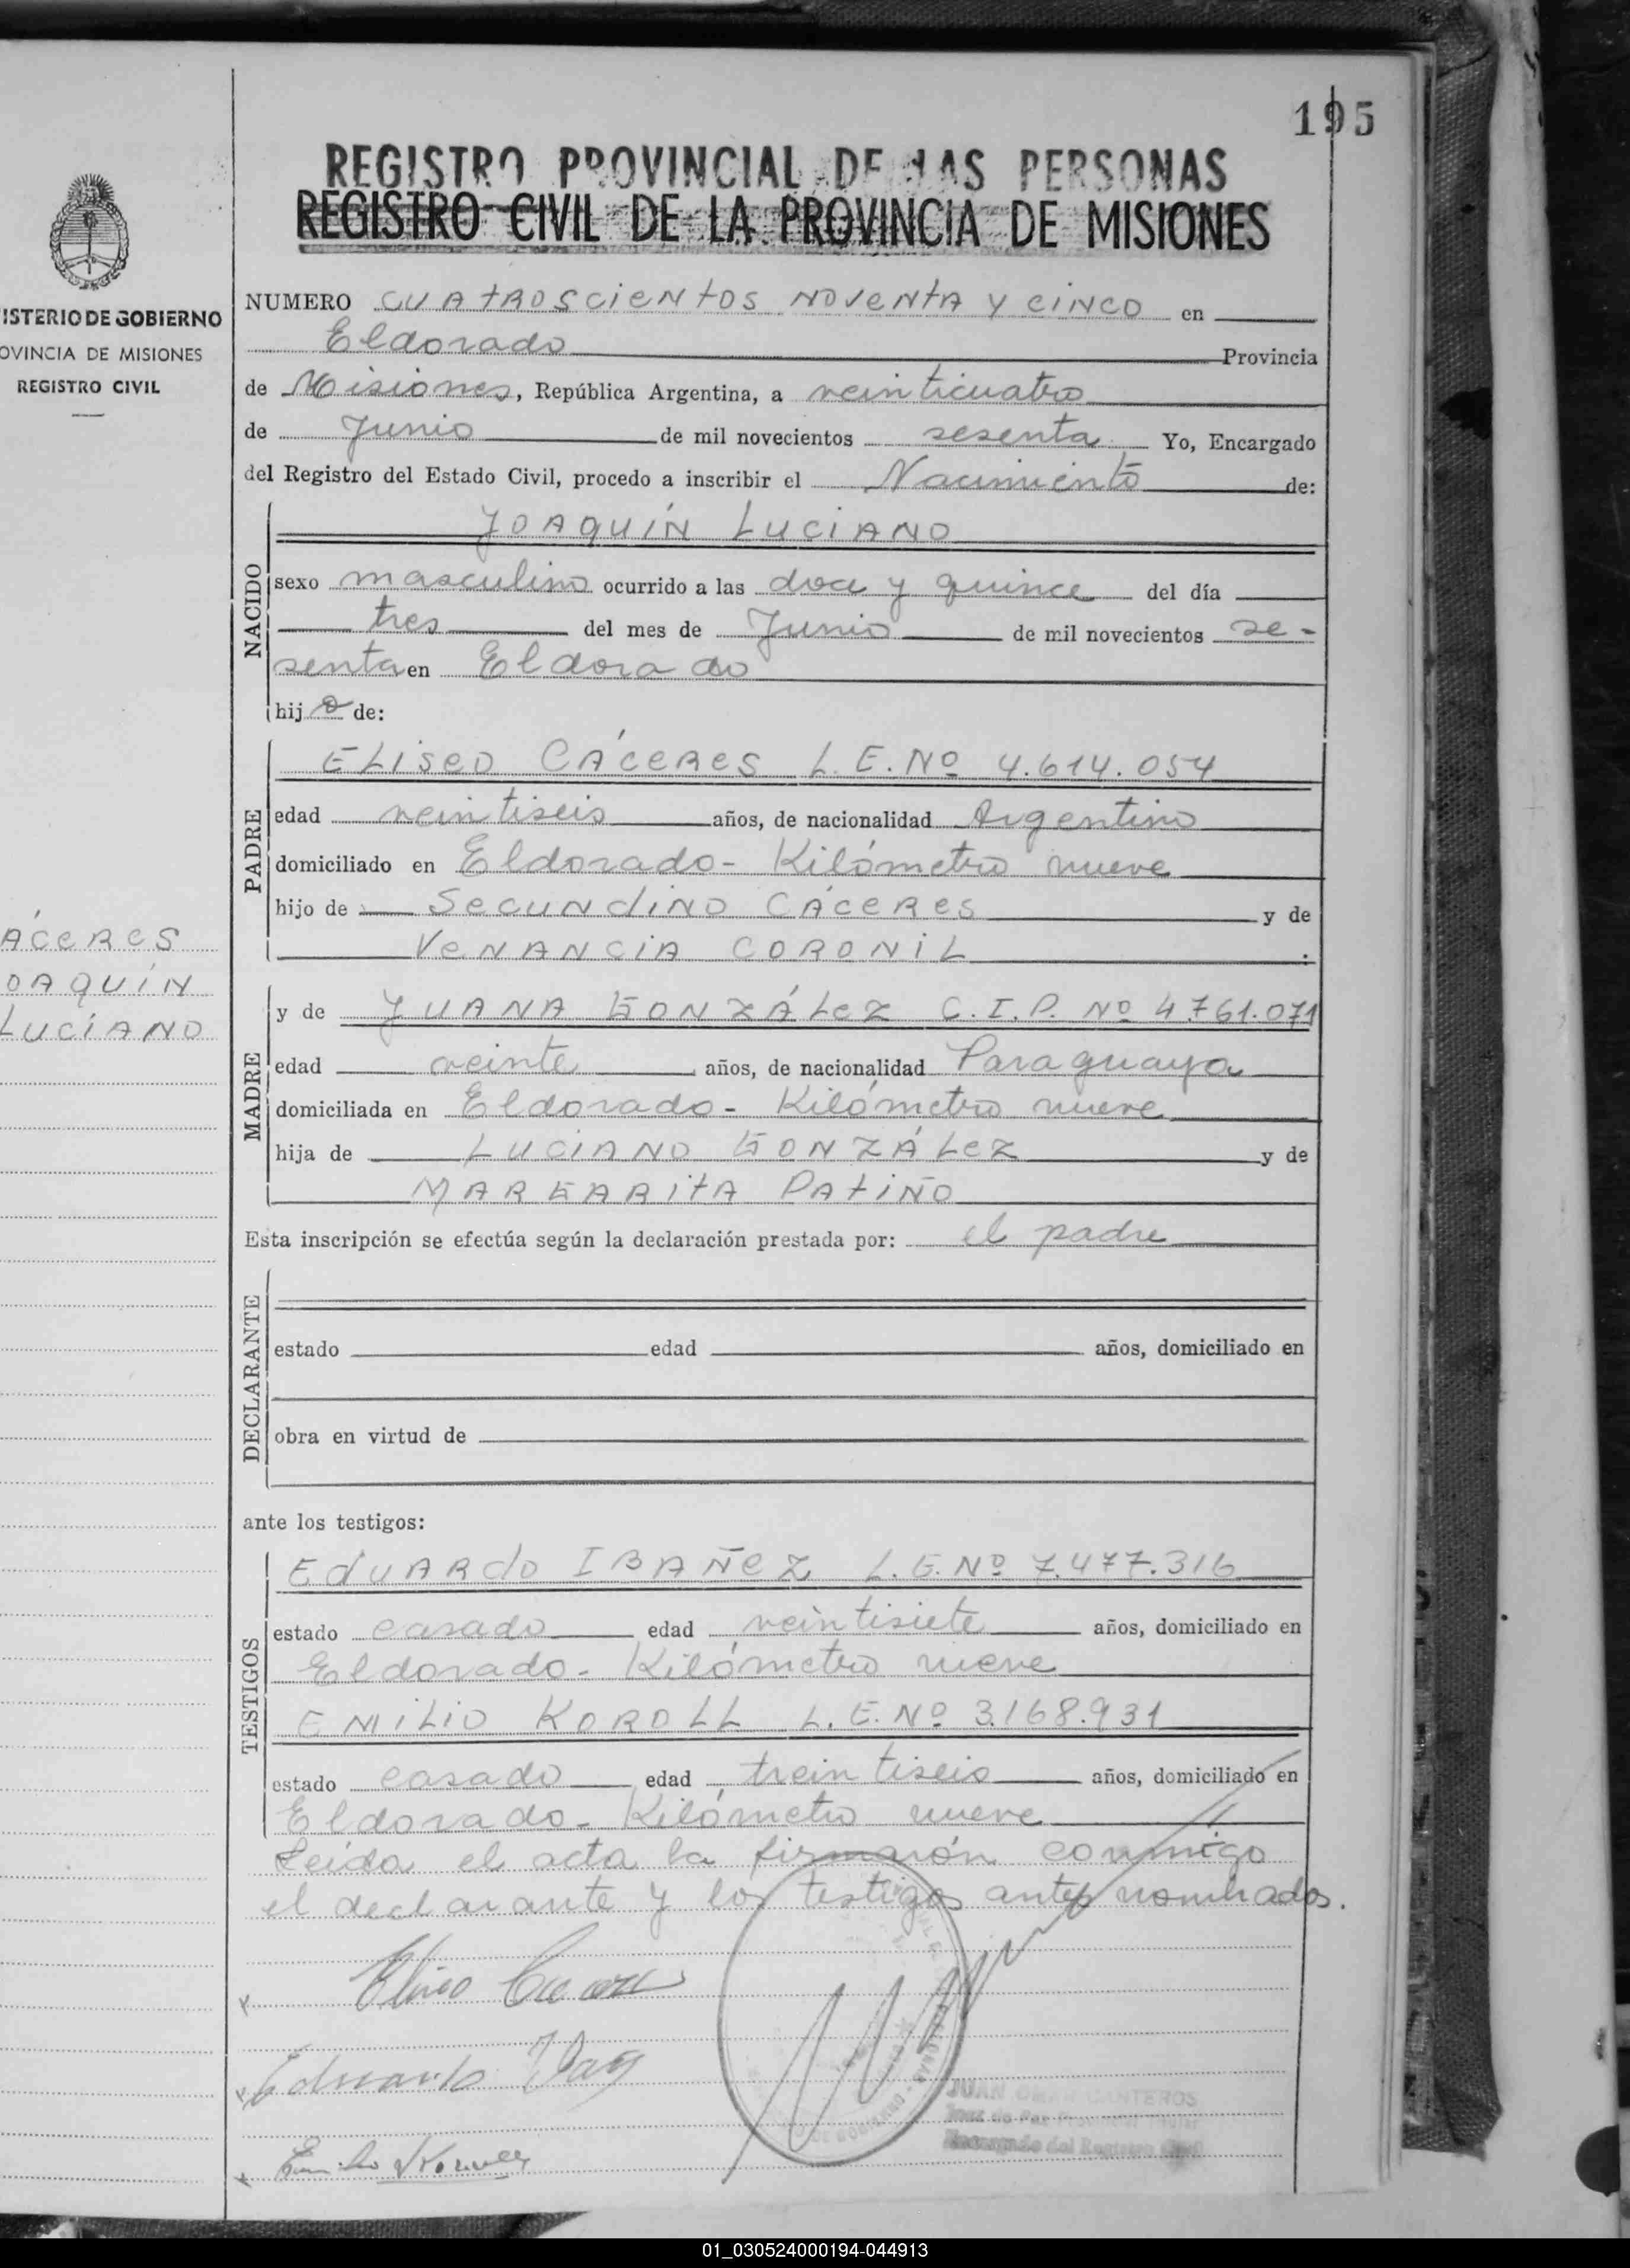 195
REGISTRO PROVINCIAL DE LAS PERSONAS
REGISTRO CIVIL DE LA PROVINCIA DE MISIONES
ISTERIO DE GOBIERNO
OVINCIA DE MISIONES
REGISTRO CIVIL
NUMERO CUATROSCIENTOS NOVENTA Y CINCO en
Eldorado Provincia
de Misiones, República Argentina, a veinticuatro
de Junio de mil novecientos sesenta Yo, Encargado
del Registro del Estado Civil, procedo a inscribir el Nacimiento de:
NACIDO
JOAQUÍN LUCIANO
sexo masculino ocurrido a las doce y quince del día
tres del mes de Junio de mil novecientos se-
senta en Eldorado
hijo de:
PADRE
ELISEO CÁCERES L.E.Nº 4.614.054
edad veintiseis años, de nacionalidad Argentino
domiciliado en Eldorado- Kilómetro nueve
hijo de SECUNDINO CÁCERES y de
VENANCIA CORONIL.
ÁCERES
OAQUÍN
LUCIANO
MADRE
y de JUANA GONZÁLEZ C.I.P. Nº 4.761.071
edad veinte años, de nacionalidad Paraguaya
domiciliada en Eldorado- Kilómetro nueve
hija de LUCIANO GONZÁLEZ y de
MARGARITA PATIÑO
Esta inscripción se efectúa según la declaración prestada por: el padre
DECLARANTE
estado edad años, domiciliado en
obra en virtud de
ante los testigos:
TESTIGOS
EDUARDO IBAÑEZ L.E.Nº 7.477.316
estado casado edad veintisiete años, domiciliado en
Eldorado- Kilómetro nueve
EMILIO KOROLL L.E.Nº 3.168.931
estado casado edad treintiseis años, domiciliado en
Eldorado- Kilómetro nueve
Leída el acta la firmarón conmigo
el declarante y los testigos antes nombrados.
Eliseo
Eduardo
Emilio
JUAN OMAR CANTEROS
Juez de Paz
Encargado del Registro Civil
01_030524000194-044913